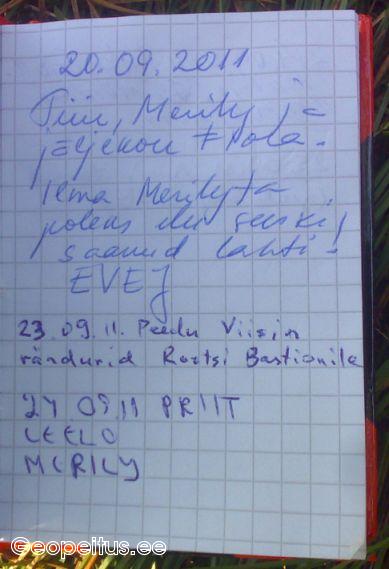 20.09.2011
Tiiu, Merily ja
jäljekoer
Ilma Merilyta
poleks ilu
saanud lahti!
EVEJ
23.09.11. Peedu Viisin
rändurid Rootsi Bastionile
24 09 11 PRIIT
LEELO
MERILY
Geopeitus.ee